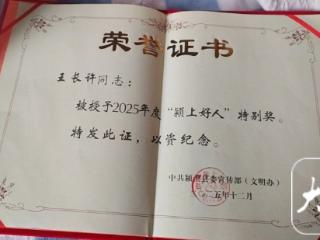 荣誉证书
王长许同志：
被授于2025年度“颍上好人”特别奖。
特发此证，以资纪念。
中共颍上县委宣传部（文明办）
二〇二五年十二月
大